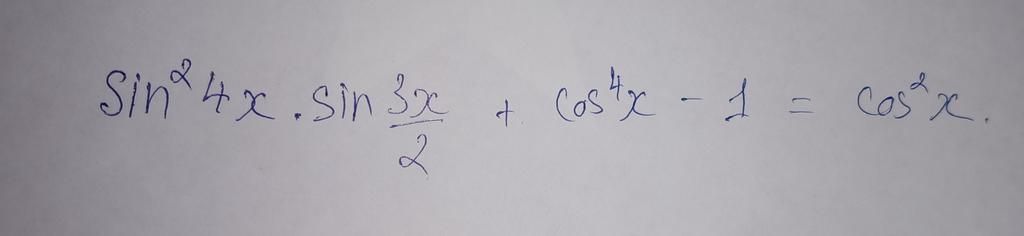 sin²4x . sin 3x/2 + cos⁴x - 1 = cos²x.